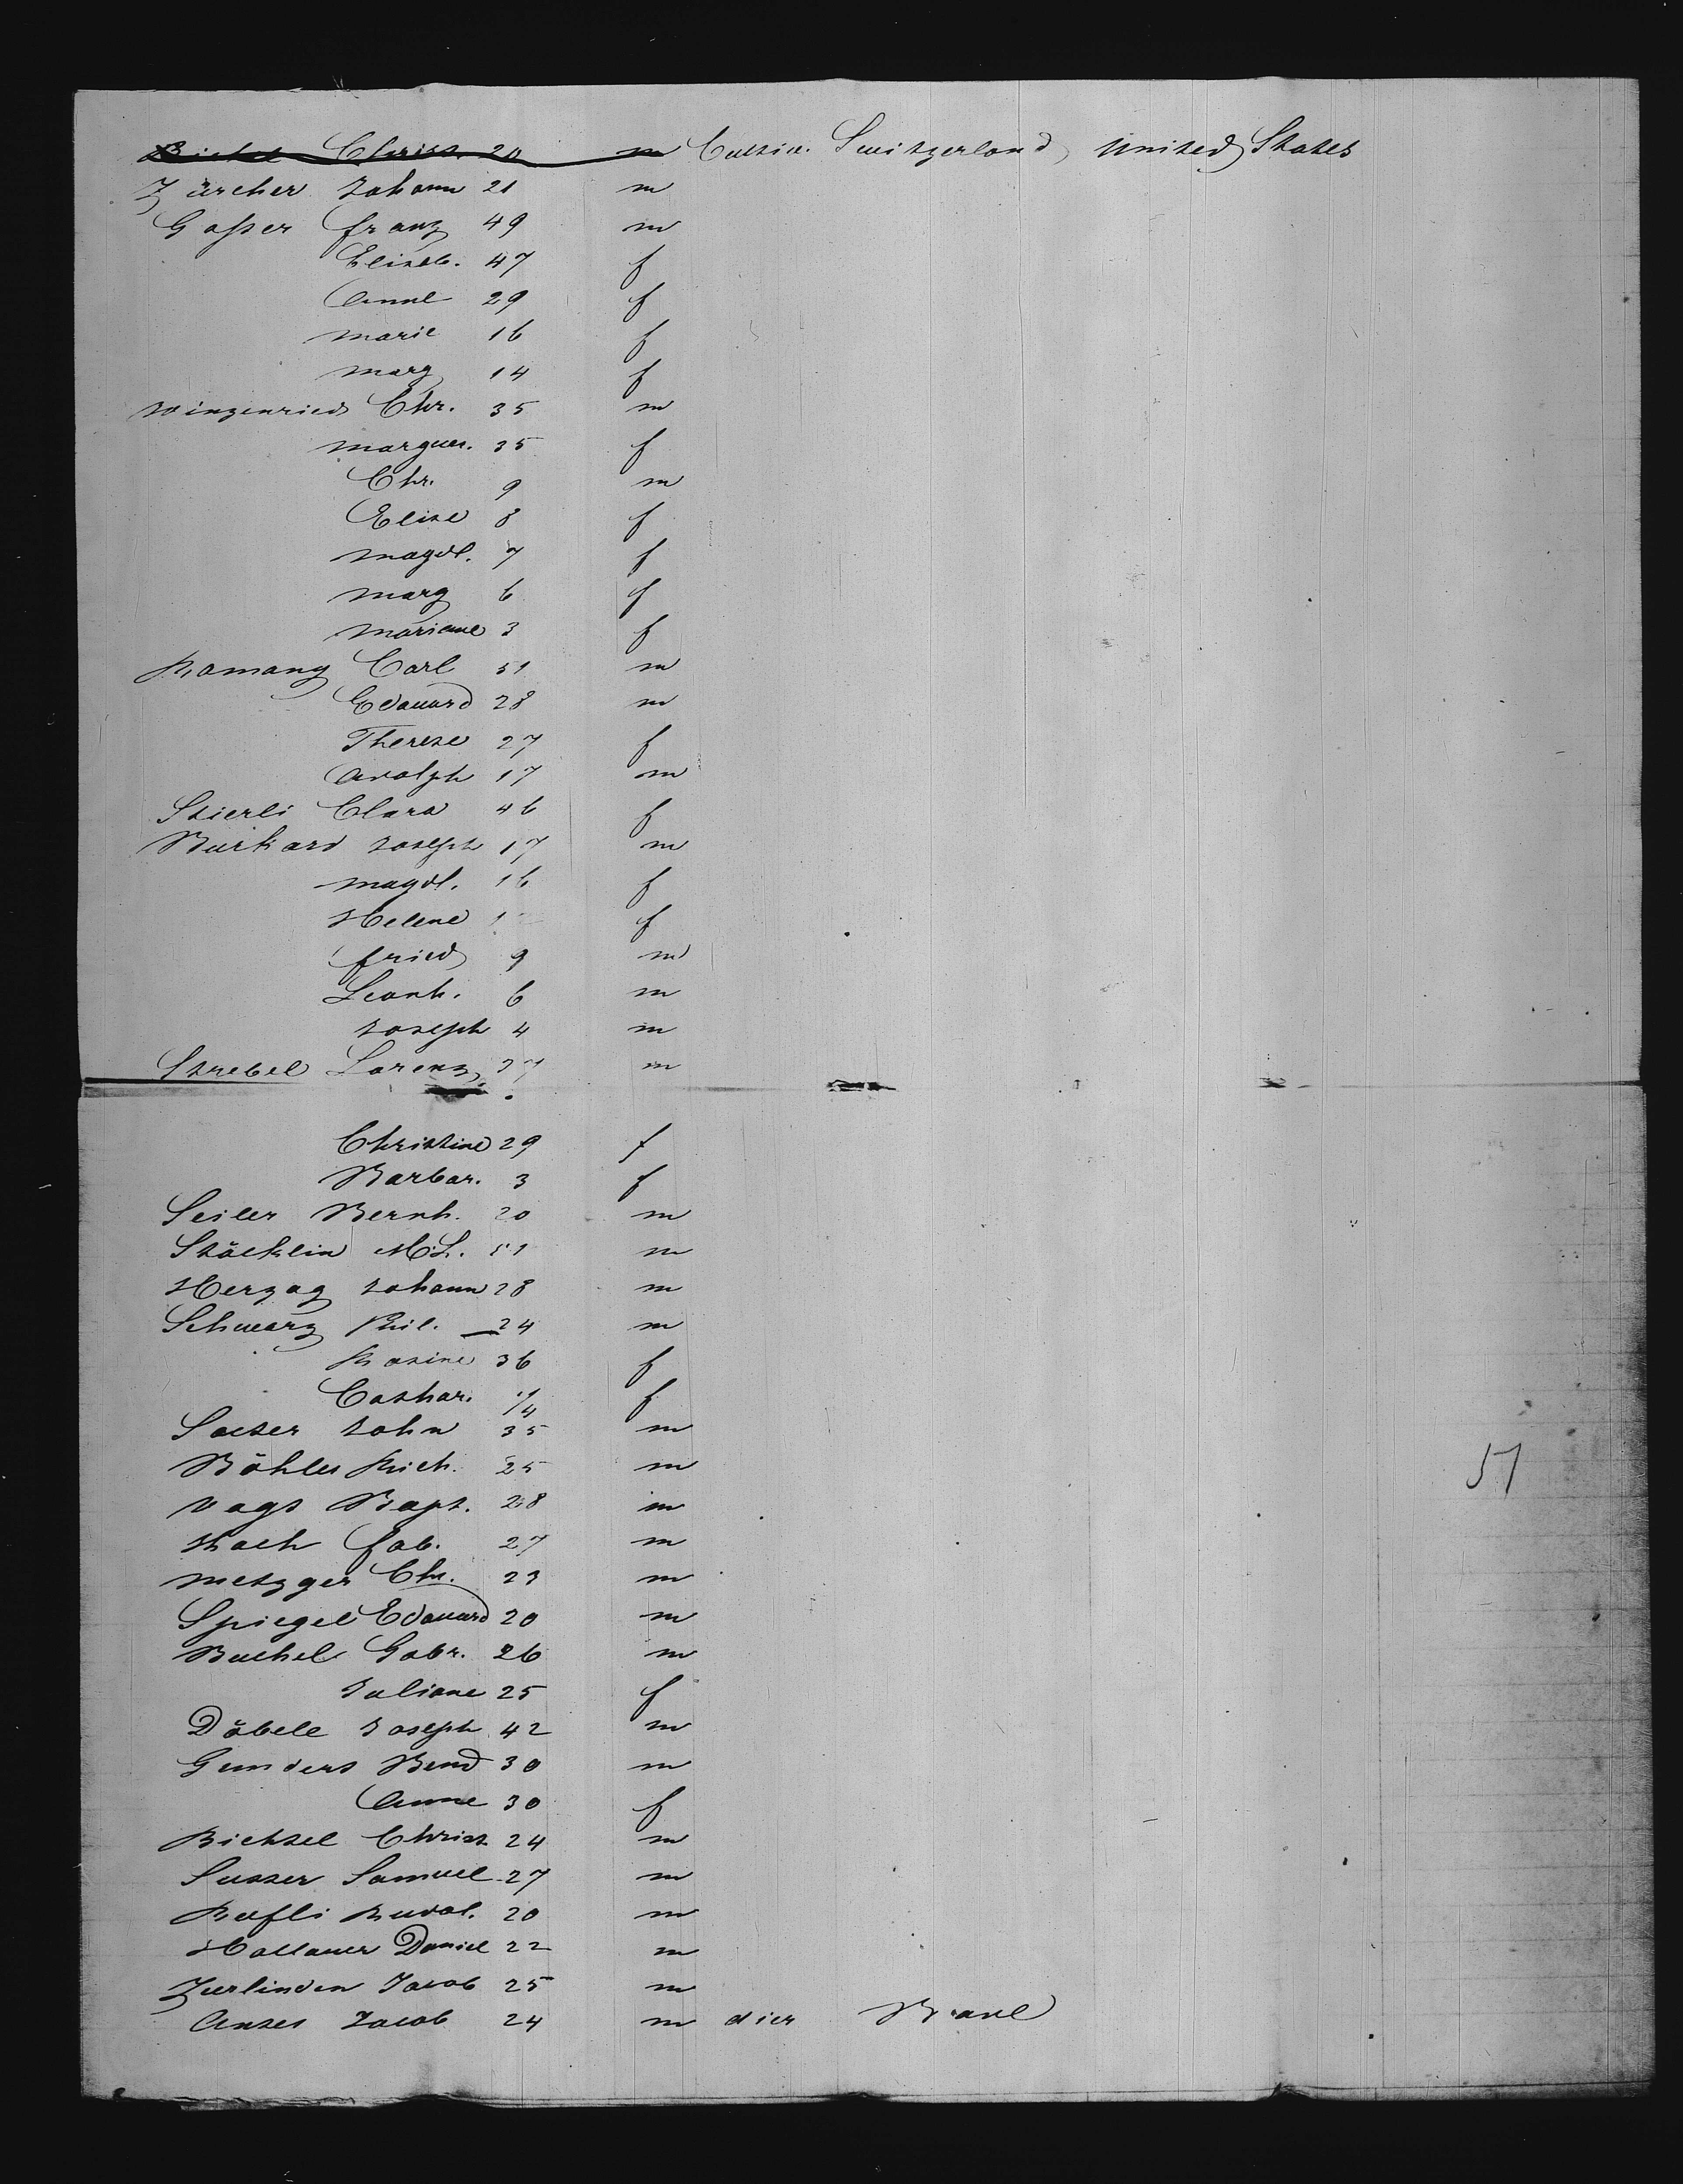 Bichsel Christ. 20 m Cultiv. Switzerland United States
Zürcher Johann 21 m
Gasser franz 49 m
Elisab. 47 f
Anne 29 f
marie 16 f
marg 14 f
Wingenried Chr. 35 m
marguer. 35 f
Chr. 9 m
Elise 8 f
magd. 7 f
marg 6 f
mariane 3 f
Romang Carl 51 m
Edouard 28 m
Therese 27 f
Adolph 17 m
Stierli Clara 46 f
Burkard Joseph 17 m
magd. 16 f
Helene f
fried 9 m
Leonh. 6 m
Joseph 4 m
Strebel Lorenz 37 m
Christine 29 f
Barbar. 3 f
Seiler Bernh. 20 m
Stöcklin M.L. 51 m
Herzog Johann 28 m
Schwarz Phil. 24 m
Rosine 36 f
Cathar. 1/4 f
Suter John 35 m
Böhler Rich. 25 m
Vogt Bapt. 28 m
Koch fab. 27 m
metzger Chr. 23 m
Spiegel Edouard 20 m
Buchel Gabr. 26 m
Juliane 25 f
Döbele Joseph 42 m
Gundert Bend 30 m
Anne 30 f
Bichsel Christ 24 m
Sutter Samuel 27 m
Rufli Rudol. 20 m
Hallauer Daniel 22 m
Zurlinden Jacob 25 m
Jacob 24 m
57